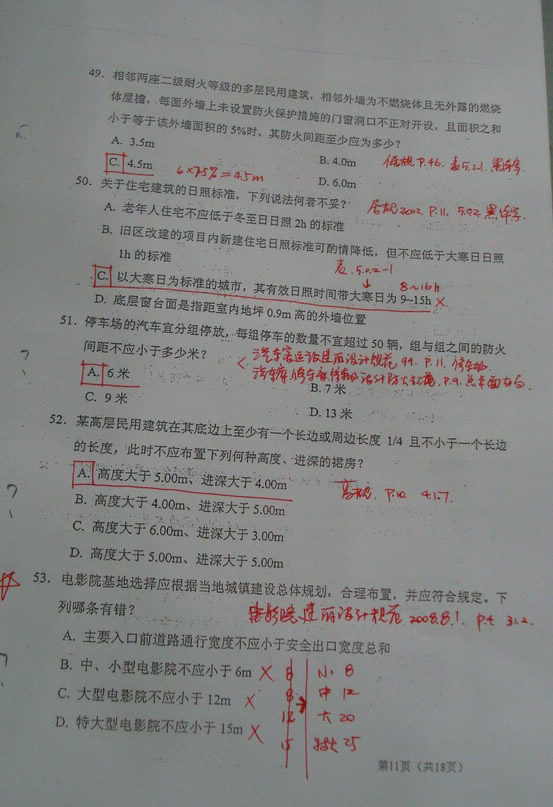 49. 相邻两座二级耐火等级的多层民用建筑，相邻外墙为不燃烧体且无外露的燃烧
体屋檐，每面外墙上未设置防火保护措施的门窗洞口不正对开设，且面积之和
小于等于该外墙面积的 5%时，其防火间距至少应为多少？
A. 3.5m B. 4.0m
C. 4.5m 6×75%=4.5m D. 6.0m
P.46. 表5.2.1
50. 关于住宅建筑的日照标准，下列说法何者不妥？
2002 P.11, 5.0.2 黑体字.
A. 老年人住宅不应低于冬至日日照 2h 的标准
B. 旧区改建的项目内新建住宅日照标准可酌情降低，但不应低于大寒日日照
1h 的标准 表.5.0.2-1
8~16h
C. 以大寒日为标准的城市，其有效日照时间带大寒日为 9~15h ×
D. 底层窗台面是指距室内地坪 0.9m 高的外墙位置
51. 停车场的汽车宜分组停放，每组停车的数量不宜超过 50 辆，组与组之间的防火
间距不应小于多少米？
A. 6 米 B. 7 米
C. 9 米 D. 13 米
52. 某高层民用建筑在其底边上至少有一个长边或周边长度 1/4 且不小于一个长边
的长度，此时不应布置下列何种高度、进深的裙房？
A. 高度大于 5.00m、进深大于 4.00m
高规. P.10 4.1.7.
B. 高度大于 4.00m、进深大于 5.00m
C. 高度大于 6.00m、进深大于 3.00m
D. 高度大于 5.00m、进深大于 5.00m
53. 电影院基地选择应根据当地城镇建设总体规划，合理布置，并应符合规定。下
列哪条有错？ 电影院建筑设计规范 2008.8.1. P.4 3.1.2.
A. 主要入口前道路通行宽度不应小于安全出口宽度总和
B. 中、小型电影院不应小于 6m × 8 小 8
C. 大型电影院不应小于 12m × 8 中 12
12 大 20
D. 特大型电影院不应小于 15m × 15 特大 25
第11页（共18页）